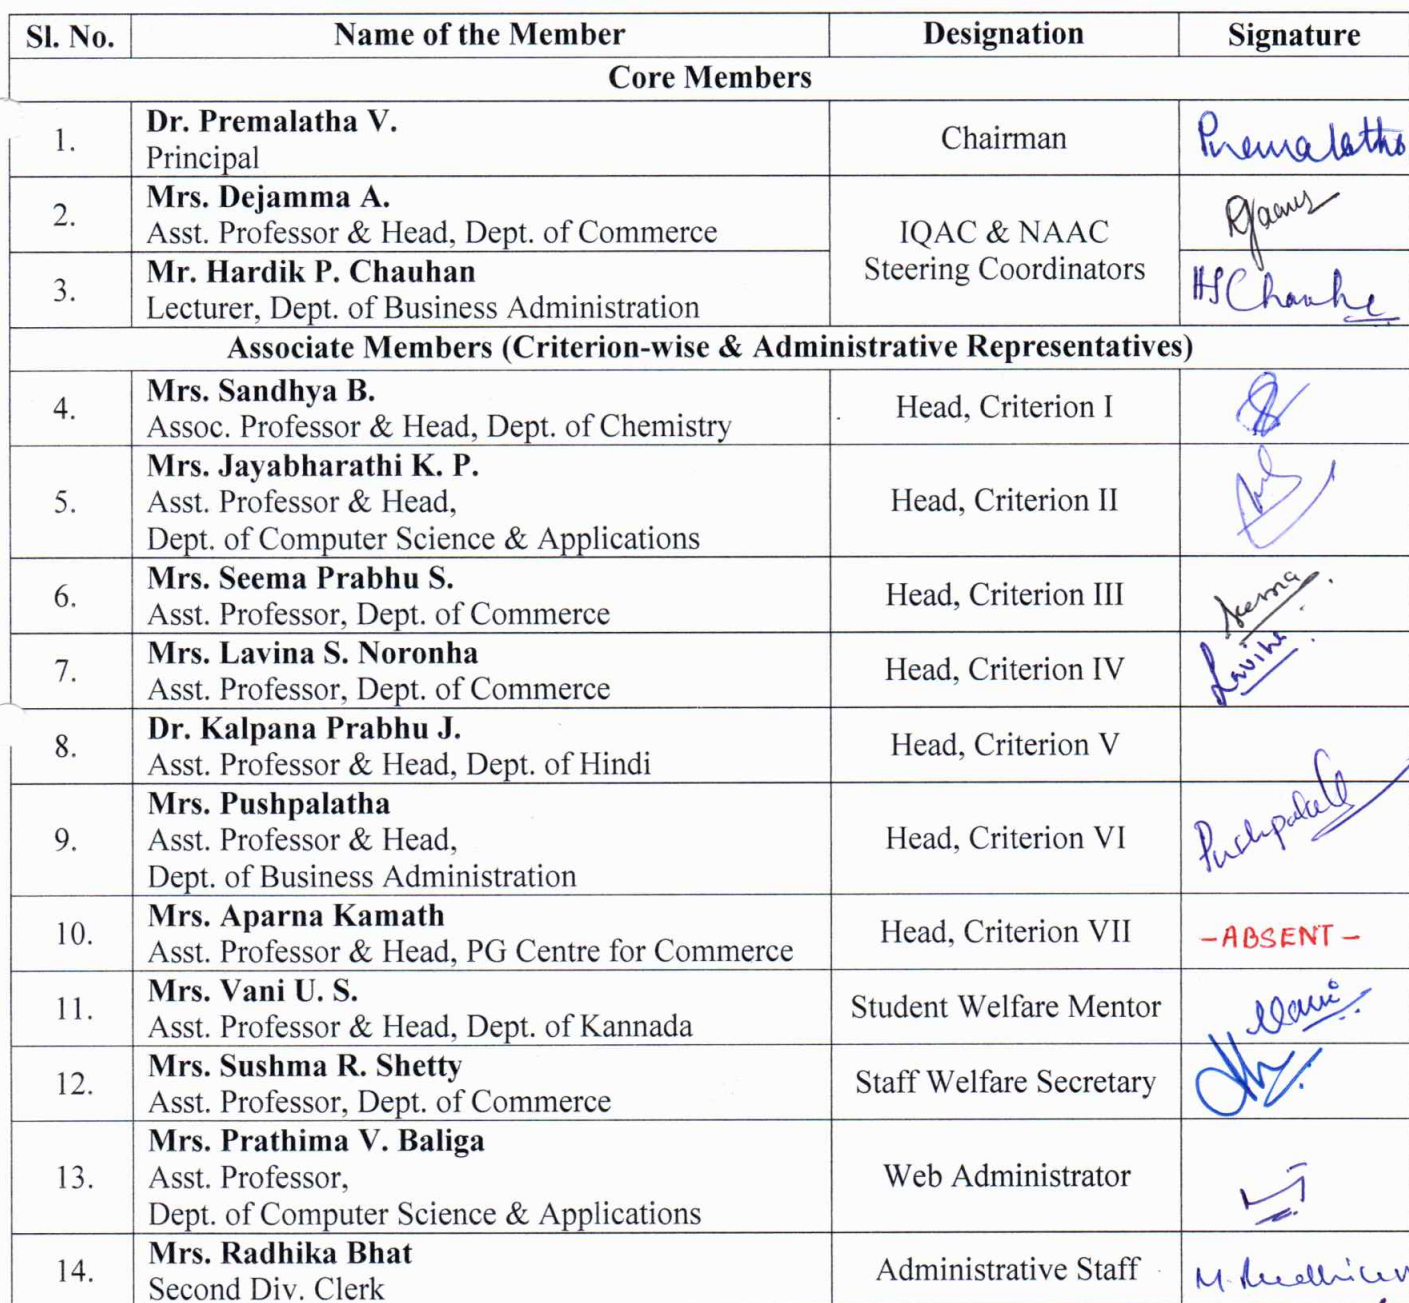 Sl. No. Name of the Member Designation Signature
Core Members
1. Dr. Premalatha V.
Principal
Chairman
Premalatha
2. Mrs. Dejamma A.
Asst. Professor & Head, Dept. of Commerce
IQAC & NAAC
Steering Coordinators
3. Mr. Hardik P. Chauhan
Lecturer, Dept. of Business Administration
Associate Members (Criterion-wise & Administrative Representatives)
4. Mrs. Sandhya B.
Assoc. Professor & Head, Dept. of Chemistry
Head, Criterion I
5. Mrs. Jayabharathi K. P.
Asst. Professor & Head,
Dept. of Computer Science & Applications
Head, Criterion II
6. Mrs. Seema Prabhu S.
Asst. Professor, Dept. of Commerce
Head, Criterion III
7. Mrs. Lavina S. Noronha
Asst. Professor, Dept. of Commerce
Head, Criterion IV
Lavina
8. Dr. Kalpana Prabhu J.
Asst. Professor & Head, Dept. of Hindi
Head, Criterion V
9. Mrs. Pushpalatha
Asst. Professor & Head,
Dept. of Business Administration
Head, Criterion VI
10. Mrs. Aparna Kamath
Asst. Professor & Head, PG Centre for Commerce
Head, Criterion VII
-ABSENT-
11. Mrs. Vani U. S.
Asst. Professor & Head, Dept. of Kannada
Student Welfare Mentor
12. Mrs. Sushma R. Shetty
Asst. Professor, Dept. of Commerce
Staff Welfare Secretary
13. Mrs. Prathima V. Baliga
Asst. Professor,
Dept. of Computer Science & Applications
Web Administrator
14. Mrs. Radhika Bhat
Second Div. Clerk
Administrative Staff